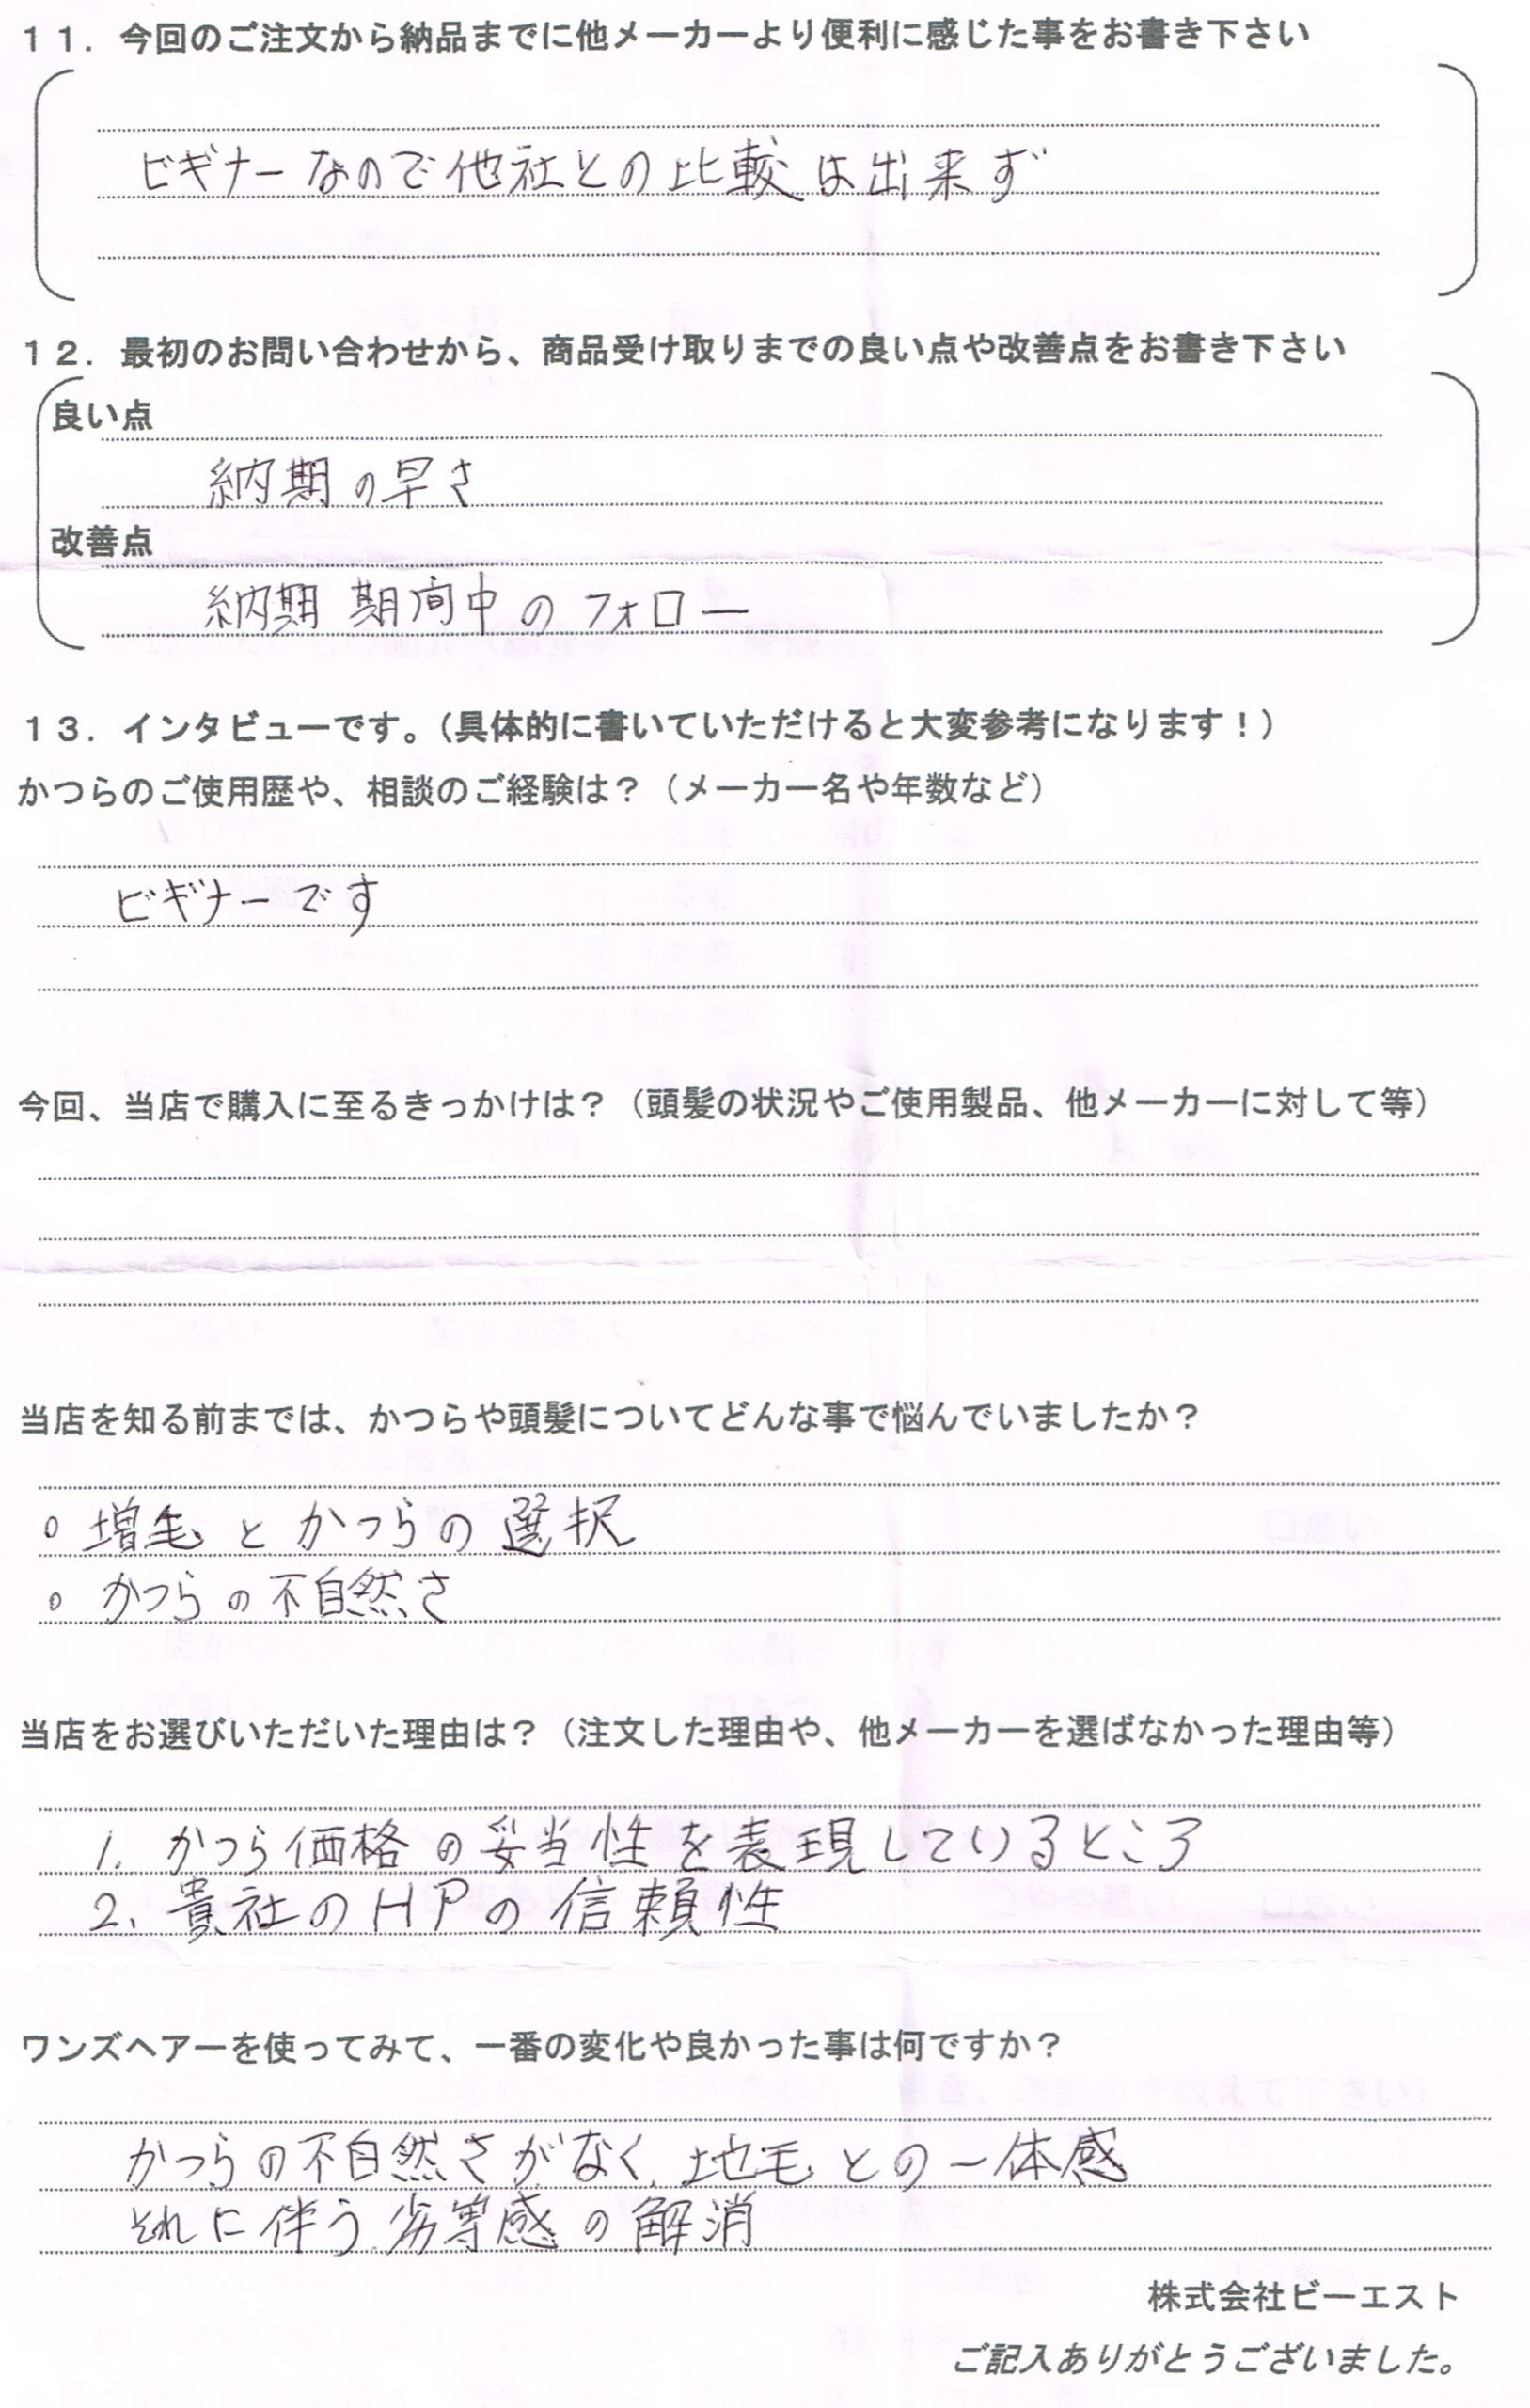 11．今回のご注文から納品までに他メーカーより便利に感じた事をお書き下さい
ビギナーなので他社との比較は出来ず
12．最初のお問い合わせから、商品受け取りまでの良い点や改善点をお書き下さい
良い点
納期の早さ
改善点
納期期間中のフォロー
13．インタビューです。（具体的に書いていただけると大変参考になります！）
かつらのご使用歴や、相談のご経験は？（メーカー名や年数など）
ビギナーです
今回、当店で購入に至るきっかけは？（頭髪の状況やご使用製品、他メーカーに対して等）
当店を知る前までは、かつらや頭髪についてどんな事で悩んでいましたか？
○ 増毛とかつらの選択
○ かつらの不自然さ
当店をお選びいただいた理由は？（注文した理由や、他メーカーを選ばなかった理由等）
1. かつら価格の妥当性を表現しているところ
2. 貴社のHPの信頼性
ワンズヘアーを使ってみて、一番の変化や良かった事は何ですか？
かつらの不自然さがなく、地毛との一体感
それに伴う劣等感の解消
株式会社ビーエスト
ご記入ありがとうございました。